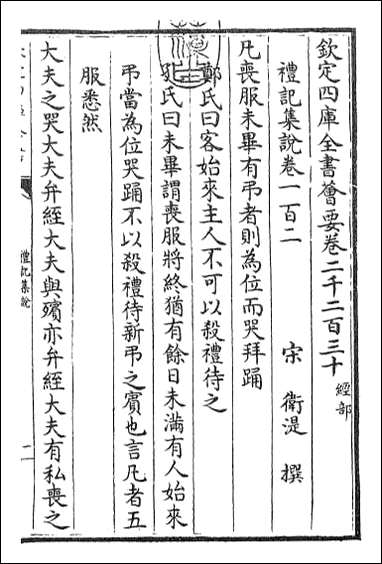 欽定四庫全書薈要卷二千二百三十 經部
禮記集說卷一百二
宋 衛湜 撰
凡喪服未畢有弔者則為位而哭拜踊
鄭氏曰客始來主人不可以殺禮待之
孔氏曰未畢謂喪服將終猶有餘日未滿有人始來
弔當為位哭踊不以殺禮待新弔之賓也言凡者五
服悉然
大夫之哭大夫弁絰大夫與殯亦弁絰大夫有私喪之
禮記集說